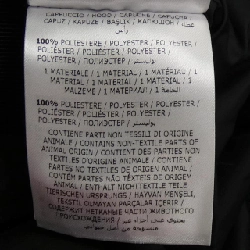 CAPPUCCIO / HOOD / CAPUCHE / CAPUCHA
CAPUZ / KAPUZE / BAŞLIK / КАПЮШОН /
رأس
100% POLIESTERE / POLYESTER /
POLIÉSTER / POLIÉSTER / POLYESTER /
POLYESTER / ПОЛИЭСТЕР / بوليستر
1 MATERIALE / 1 MATERIAL / 1 MATÉRIAU / 1
MATERIAL / 1 MATERIAL / 1 MATERIAL / 1
MALZEME / 1 МАТЕРИАЛ / 1 المادة
100% POLIESTERE / POLYESTER / POLYESTER /
POLIÉSTER / POLIÉSTER / POLYESTER /
POLYESTER / ПОЛИЭСТЕР / بوليستر
CONTIENE PARTI NON TESSILI DI ORIGINE
ANIMALE / CONTAINS NON-TEXTILE PARTS
OF ANIMAL ORIGIN / CONTIENT DES PARTIES
NON TEXTILES D'ORIGINE ANIMALE /
CONTIENE PARTES NO TEXTILES DE ORIGEN
ANIMAL / CONTÉM PARTES NÃO TÊXTEIS DE
ORIGEM ANIMAL / ENTHÄLT NICHTTEXTILE TEILE
TIERISCHEN URSPRUNGS / HAYVAN MENŞELİ,
TEKSTİL OLMAYAN PARÇALAR İÇERİR /
СОДЕРЖИТ НЕТКАНЫЕ ЧАСТИ ЖИВОТНОГО
ПРОИСХОЖДЕНИЯ /